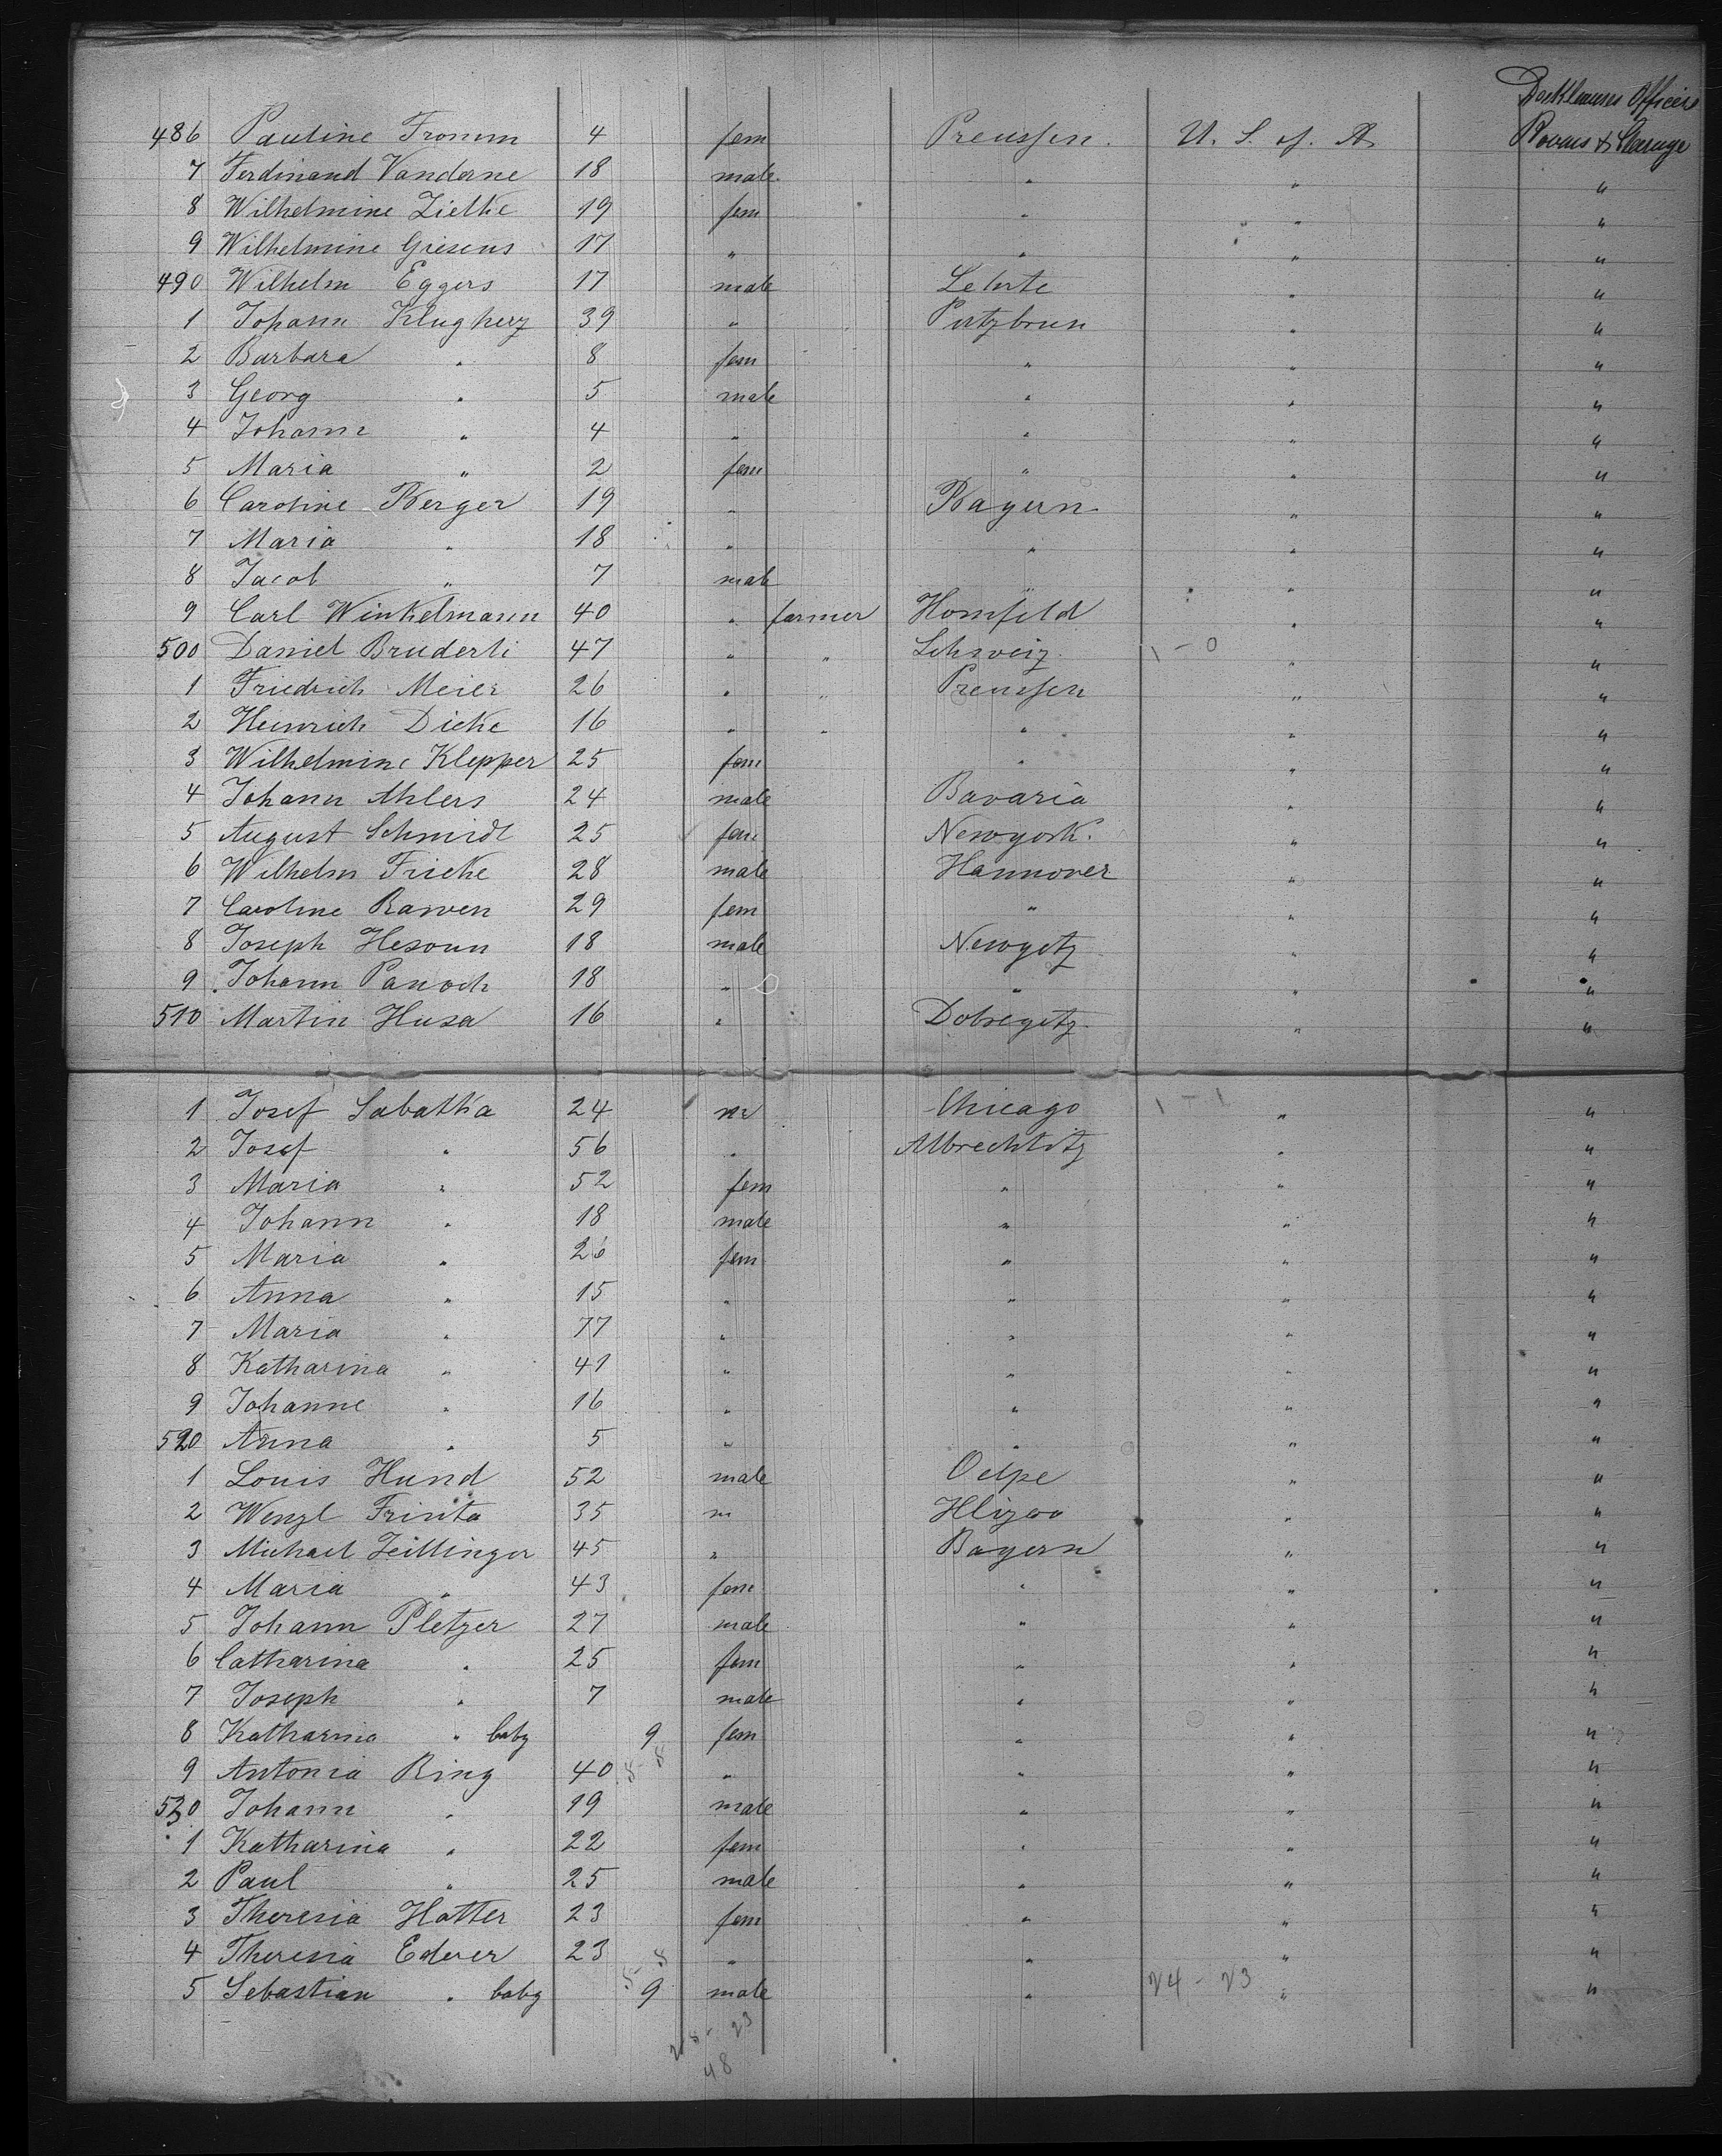 Officers
486 Pauline Fromm 4 fem Preussen. U. S. of A. &
7 Ferdinand Vanderne 18 male " " "
8 Wilhelmine Zielke 19 fem " " "
9 Wilhelmine Giesens 17 " " " "
490 Wilhelm Eggers 17 male Lehrte " "
1 Johann Klugherz 39 " Putzbrun " "
2 Barbara " 8 fem " " "
3 Georg " 5 male " " "
4 Johann " 4 " " " "
5 Maria " 2 fem " " "
6 Caroline Berger 19 " Bayern " "
7 Maria " 18 " " " "
8 Jacob " 7 male " " "
9 Carl Winkelmann 40 " farmer Homfeld " "
500 Daniel Bruderli 47 " " Schweiz 1 - 0 " "
1 Friedrich Meier 26 " " Preussen " "
2 Heinrich Dicke 16 " " " " "
3 Wilhelmine Klepper 25 fem " " "
4 Johann Ahlers 24 male Bavaria " "
5 August Schmidt 25 fem Newyork. " "
6 Wilhelm Fricke 28 male Hannover " "
7 Caroline Rawen 29 fem " " "
8 Joseph Hesoun 18 male Newgetz " "
9 Johann Panoch 18 " " " "
510 Martin Husa 16 " Dobregetz. " "
1 Josef Sabatka 24 m Chicago 1 - 1 " "
2 Josef " 56 " Albrechtitz " "
3 Maria " 52 fem " " "
4 Johann " 18 male " " "
5 Maria " 26 fem " " "
6 Anna " 15 " " " "
7 Maria " 77 " " " "
8 Katharina " 41 " " " "
9 Johanne " 16 " " " "
520 Anna " 5 " " " "
1 Louis Hund 52 male Oelpe " "
2 Wenzl Frinta 35 m " "
3 Michael Zeillinger 45 " Bayern " "
4 Maria " 43 fem " " "
5 Johann Pletzer 27 male " " "
6 Catharina " 25 fem " " "
7 Joseph " 7 male " " "
8 Katharina " baby 9 fem " " "
9 Antonia Bing 40 " " " "
530 Johann " 19 male " " "
1 Katharina " 22 fem " " "
2 Paul " 25 male " " "
3 Theresia Hatter 23 fem " " "
4 Theresia Ederer 23 " " " "
5 Sebastian " baby 9 male " 24 - 23 " "
23
48